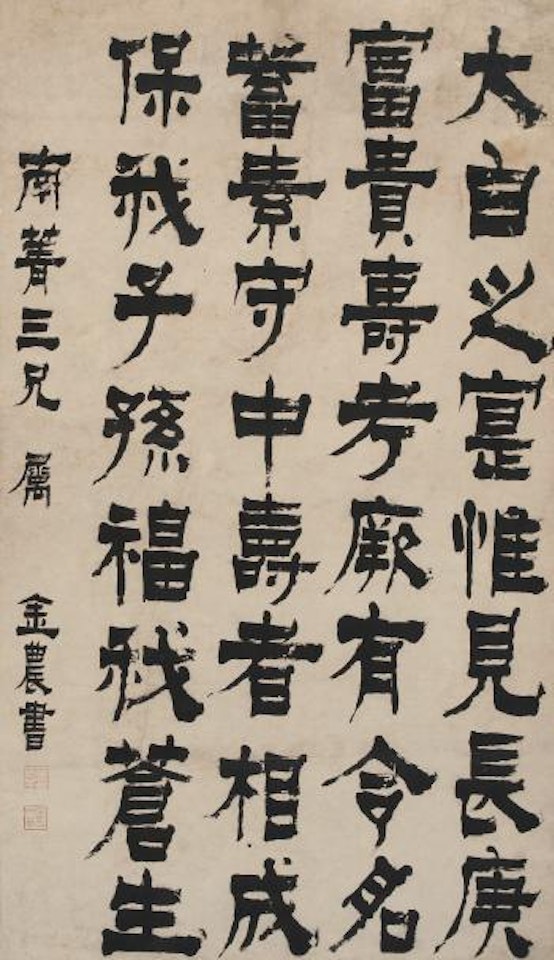 大自之寔惟見長庚
富貴壽考厥有令名
蓄素守中壽者相成
保我子孫福我蒼生
南菁三兄 屬 金農書